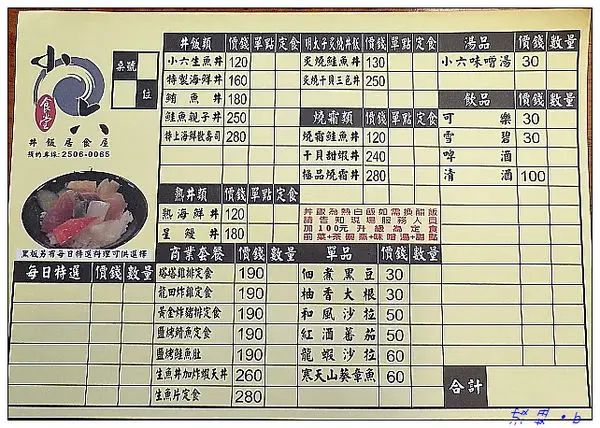 小六
食堂
丼飯居食屋
預約專線:2506-0065
桌號
位
黑板另有每日特選料理可供選擇
每日特選 價錢 數量
丼飯類 價錢 單點 定食
小六生魚丼 120
特製海鮮丼 160
鮪魚丼 180
鮭魚親子丼 250
特上海鮮散壽司 280
熟丼類 價錢 單點 定食
熟海鮮丼 120
星鰻丼 180
商業套餐 價錢 數量
塔塔雞排定食 190
龍田炸雞定食 190
黃金炸豬排定食 190
鹽烤鯖魚定食 190
鹽烤鮭魚肚 190
生魚丼加炸蝦天丼 260
生魚片定食 280
明太子炙燒丼飯 價錢 單點 定食
炙燒鮭魚丼 130
炙燒干貝三色丼 250
燒霜類 價錢 單點 定食
燒霜鮭魚丼 120
干貝甜蝦丼 240
極品燒霜丼 280
丼飯為熱白飯如需換醋飯
請告知現場服務人員
加100元升級為定食
前菜+茶碗蒸+味噌湯+甜點
單品 價錢 數量
佃煮黑豆 30
柚香大根 30
和風沙拉 50
紅酒蕃茄 50
龍蝦沙拉 60
寒天山葵章魚 60
湯品 價錢 數量
小六味噌湯 30
飲品 價錢 數量
可樂 30
雪碧 30
啤酒
清酒 100
合計